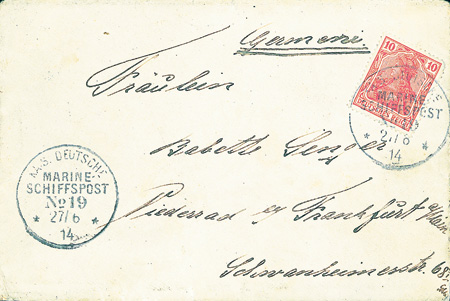 Germany
10 10
Fräulein
MARINE-
SCHIFFSPOST
27/6
14
Babette
KAIS. DEUTSCHE
MARINE-
SCHIFFSPOST
No 19
27/6
14
Niederrad a/ Frankfurt a/Main
Schwanheimerstr. 68